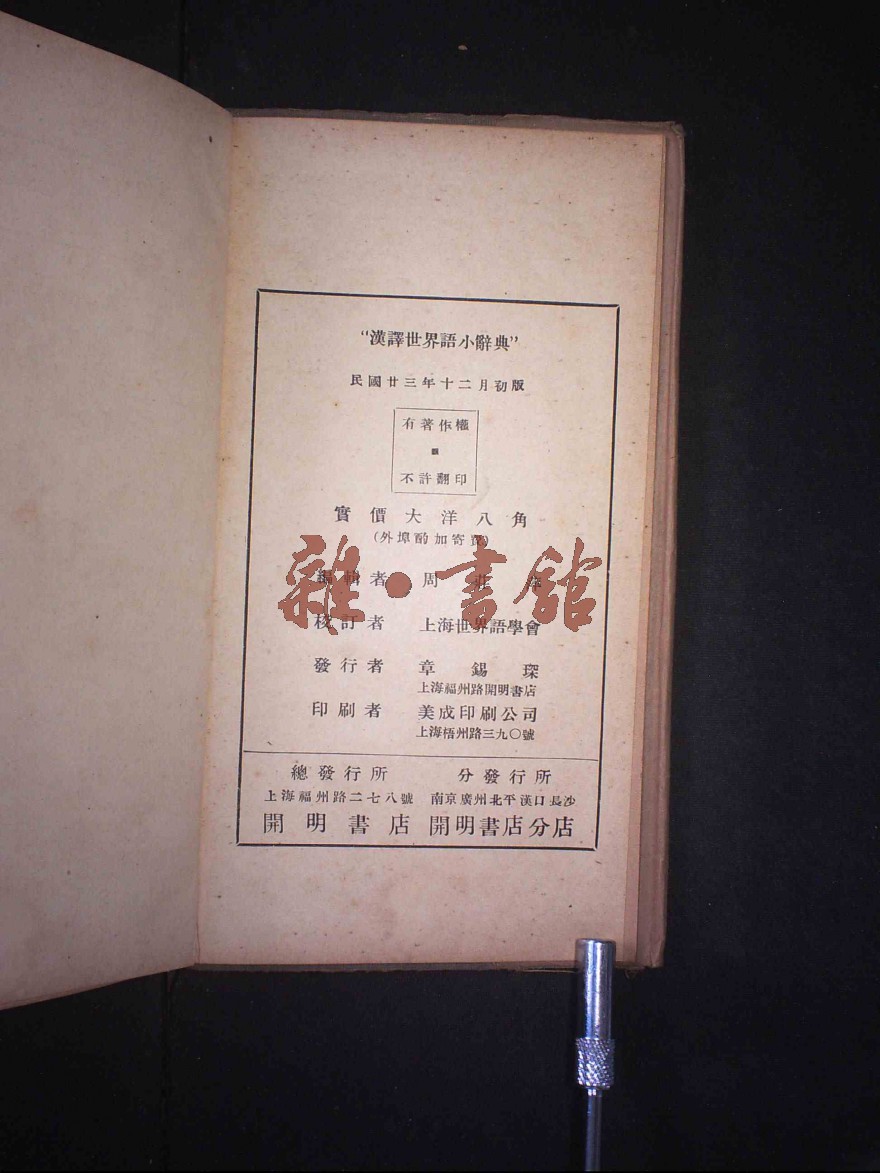 “漢譯世界語小辭典”
民國廿三年十二月初版
有著作權
不許翻印
實價大洋八角
(外埠酌加寄費)
編輯者 周
校訂者 上海世界語學會
發行者 章錫琛
上海福州路開明書店
印刷者 美成印刷公司
上海梧州路三九〇號
總發行所
上海福州路二七八號
開明書店
分發行所
南京廣州北平漢口長沙
開明書店分店
雜·書館